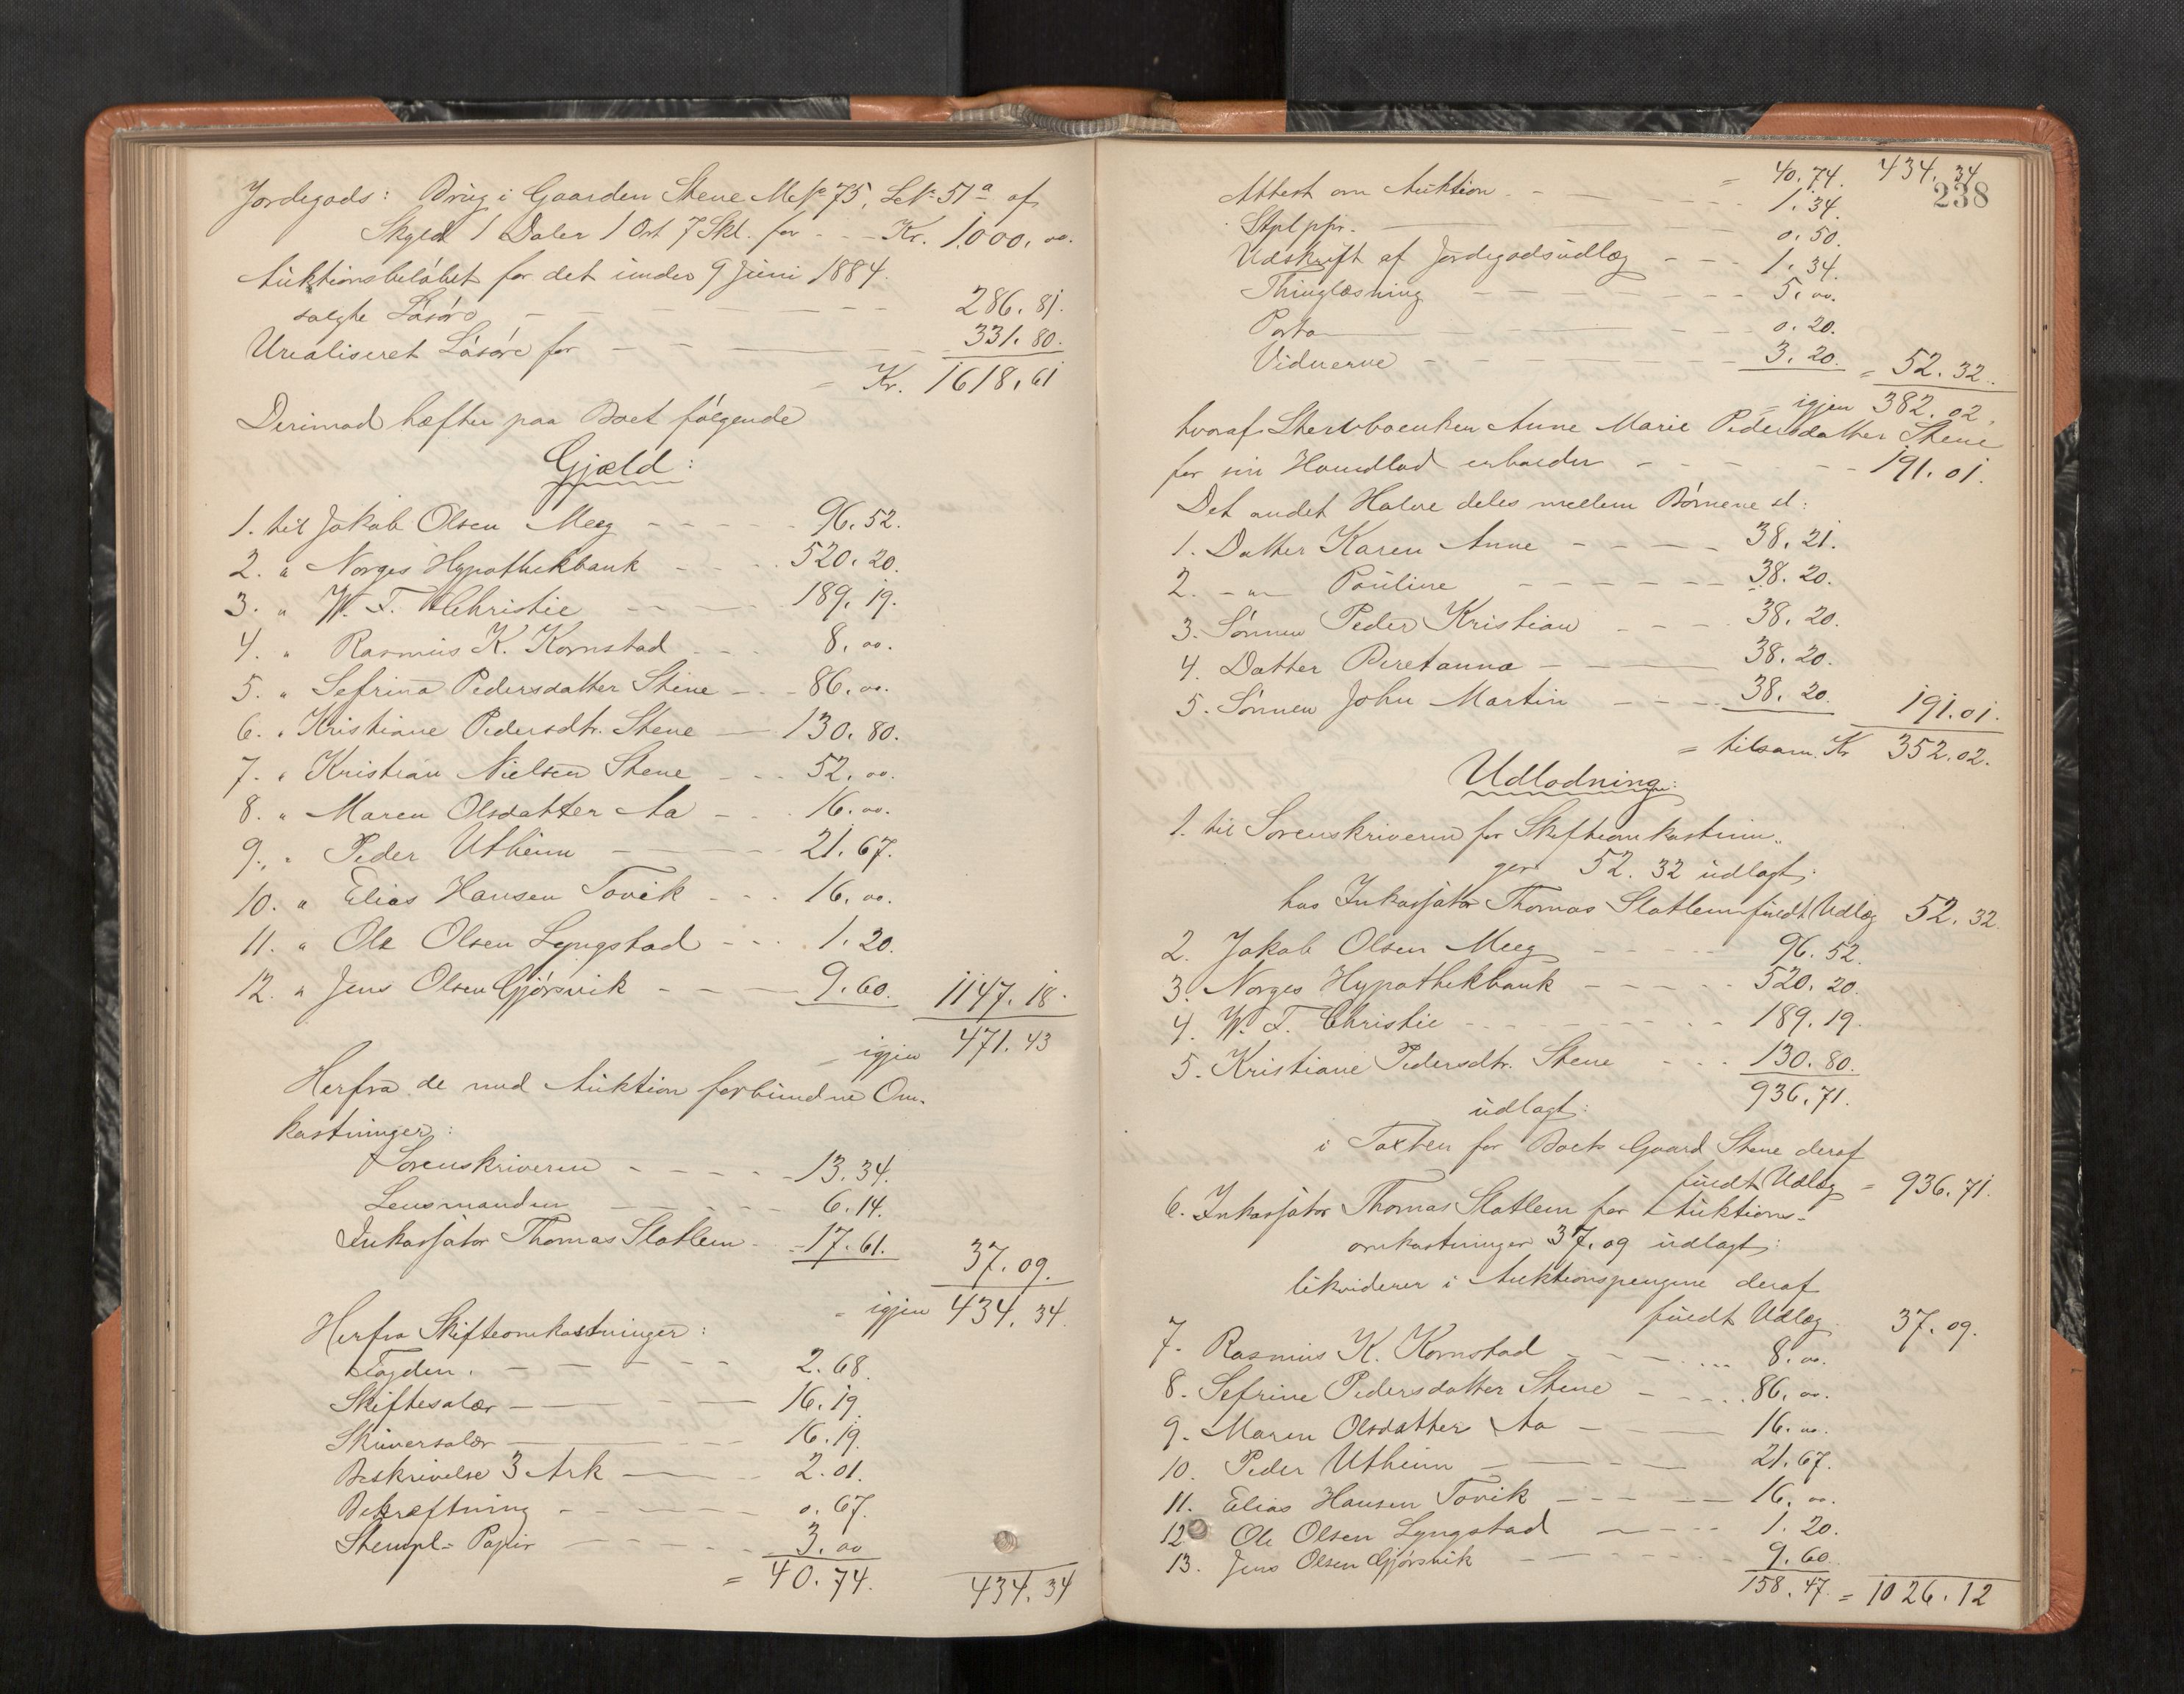 Jordegods: Brug i Gaarden Stene M. No 75, L. No 51a af
Skyld 1 Daler 1 Ort 7 Skl. for - - Kr. 1000. 00.
Auktionsbeløbet for det under 9 Juni 1884
solgte Løsøre - - - 286. 81.
Urealiseret Løsøre for - - - 331. 80.
= Kr. 1618. 61
Derimod hæfter paa Boet følgende
Gjæld:
1. til Jakob Olsen Meeg - - - 96. 52.
2. " Norges Hypothekbank - - - 520. 20.
3. " W. F. Christie - - - 189. 19.
4. " Rasmus K. Kornstad - - - 8. 00.
5. " Sefrina Pedersdatter Stene - - 86. 00.
6. " Kristiane Pedersdtr. Stene - 130. 80.
7. " Kristian Nielsen Stene - - - 52. 00.
8. " Maren Olsdatter Aa - - - 16. 00.
9. " Peder Utheim - - - 21. 67.
10. " Elias Hansen Tovik - - - 16. 00.
11. " Ole Olsen Lyngstad - - - 1. 20.
12. " Jens Olsen Gjørsvik - - - 9. 60. 1147. 18.
= igjen 471. 43
Herfra de med Auktion forbundne Om-
kostninger:
Sorenskriveren - - - 13. 34.
Lensmanden - - - 6. 14.
Inkassator Thomas Slatlem - - 17. 61. 37. 09.
= igjen 434. 34.
Herfra Skifteomkostninger:
Fogden. - - - 2. 68.
Skiftesalær - - - 16. 19.
Skriversalær - - - 16. 19.
Beskrivelse 3 Ark - - - 2. 01.
Bekræftning - - - 0. 67.
Stempl= Papir - - - 3. 00
= 40. 74. 434. 34
= 40. 74. 434. 34
238
Attest om Auktion - - - 1. 34.
Stpl ppr. - - - 0. 50.
Udskrift af Jordegodsudlæg - - - 1. 34.
Thinglæsning - - - 5. 00.
Porto - - - 0. 20.
Vidnerne - - - 3. 20. = 52. 32.
= igjen 382. 02.
hvoraf Stervboenken Anne Marie Pedersdatter Stene
for sin Hovedlod erholder - - - 191. 01.
Det andet Halve deles mellem Børnene sl:
1. Datter Karen Anne - - - 38. 21.
2. - " - Pauline - - - 38. 20.
3. Sønnen Peder Kristian - - - 38. 20.
4. Datter Beretanna - - - 38. 20.
5. Sønnen John Martin - - - 38. 20. 191. 01.
= tilsam. Kr 352. 02.
Udlodning:
1. til Sorenskriveren for Skifteomkostnin-
ger 52. 32 udlagt:
hos Inkassator Thomas Slatlem fuldt Udlæg 52. 32.
2. Jakob Olsen Meeg - - - 96. 52.
3. Norges Hypothekbank - - - 520. 20.
4. W. F. Christie - - - 189. 19.
5. Kristiane Pedersdtr. Stene - - - 130. 80.
936. 71.
udlagt:
i Taxten for Boets Gaard Stene deraf
fuldt Udlæg = 936. 71.
6. Inkassator Thomas Slatlem for Auktions-
omkostninger 37. 09 udlagt:
likviderer i Auktionspengene deraf
fuldt Udlæg. 37. 09.
7. Rasmus K. Kornstad - - - 8. 00.
8. Sefrine Pedersdatter Stene - - - 86. 00.
9. Maren Olsdatter Aa - - - 16. 00.
10. Peder Utheim - - - 21. 67.
11. Elias Hansen Tovik - - - 16. 00.
12 Ole Olsen Lyngstad - - - 1. 20.
13. Jens Olsen Gjørsvik - - - 9. 60.
158. 47. = 1026. 12